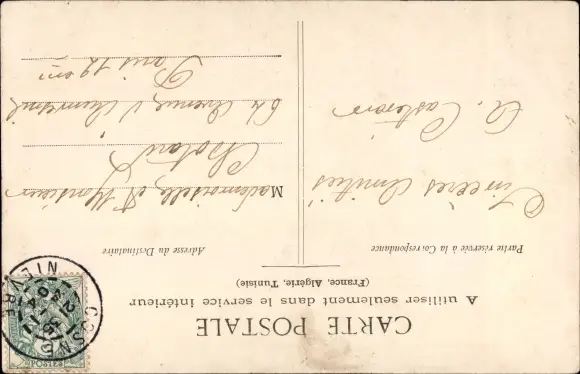 CARTE POSTALE
A utiliser seulement dans le service intérieur
(France, Algérie, Tunisie)
Partie réservée à la Correspondance
Sincères Amitiés
A. Casterau
Adresse du Destinataire
Mademoiselle et Monsieur
Chotard
64 Avenue
Paris 12em
COSNE
NIEVRE
POSTES